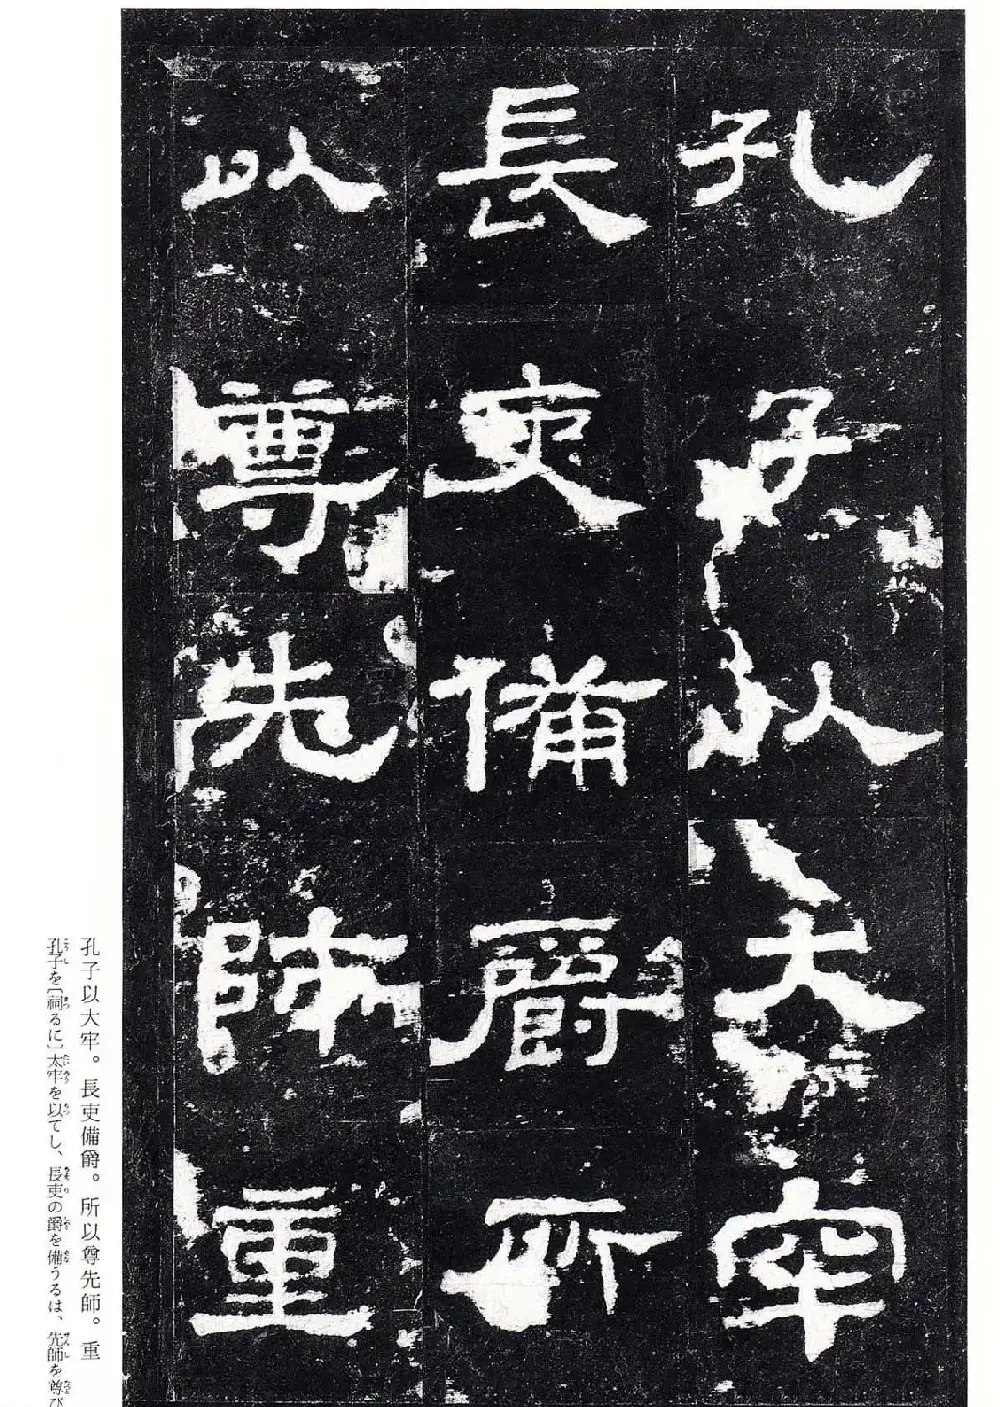 孔子以大牢
長吏備爵所
以尊先師重
孔子以大牢。長吏備爵。所以尊先師。重
孔子を〔祠るに〕太牢を以てし、長吏の爵を備うるは、先師を尊び